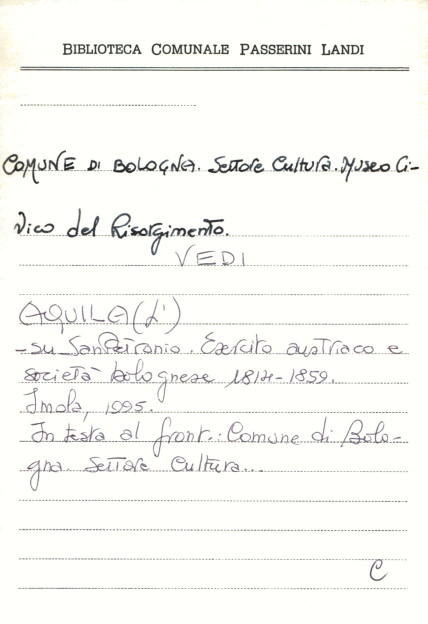 BIBLIOTECA COMUNALE PASSERINI LANDI
COMUNE DI BOLOGNA. Settore Cultura. Museo Ci-
vico del Risorgimento.
VEDI
AQUILA (L')
- su San Petronio. Esercito austriaco e
società bolognese 1814-1859.
Imola, 1995.
In testa al front.: Comune di Bolo-
gna. Settore Cultura...
C